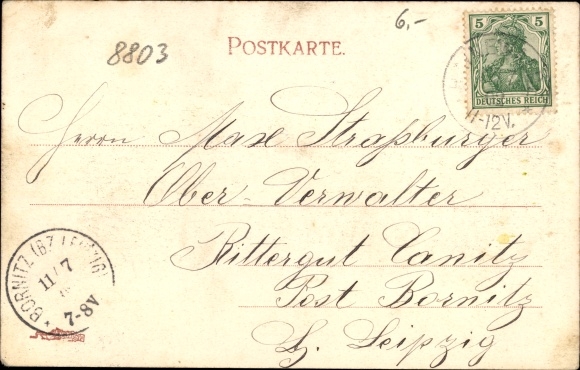 6,-
8803
POSTKARTE.
5 5
DEUTSCHES REICH
11-12V.
Herrn Max Straßburger
Ober-Verwalter
Rittergut Canitz
Post Bornitz
Bz. Leipzig
* BORNITZ (BZ. LEIPZIG)
11/7
7-8V